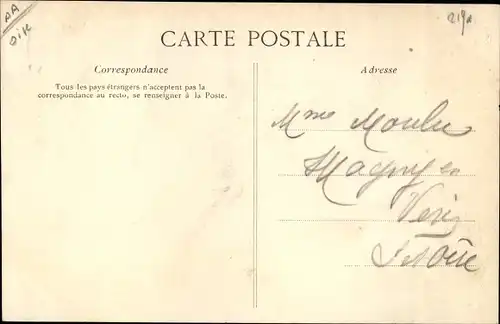 CARTE POSTALE
Correspondance
Tous les pays étrangers n'acceptent pas la
correspondance au recto, se renseigner à la Poste.
Adresse
Mme Moulu
Magny en
Vexin
S et Oise